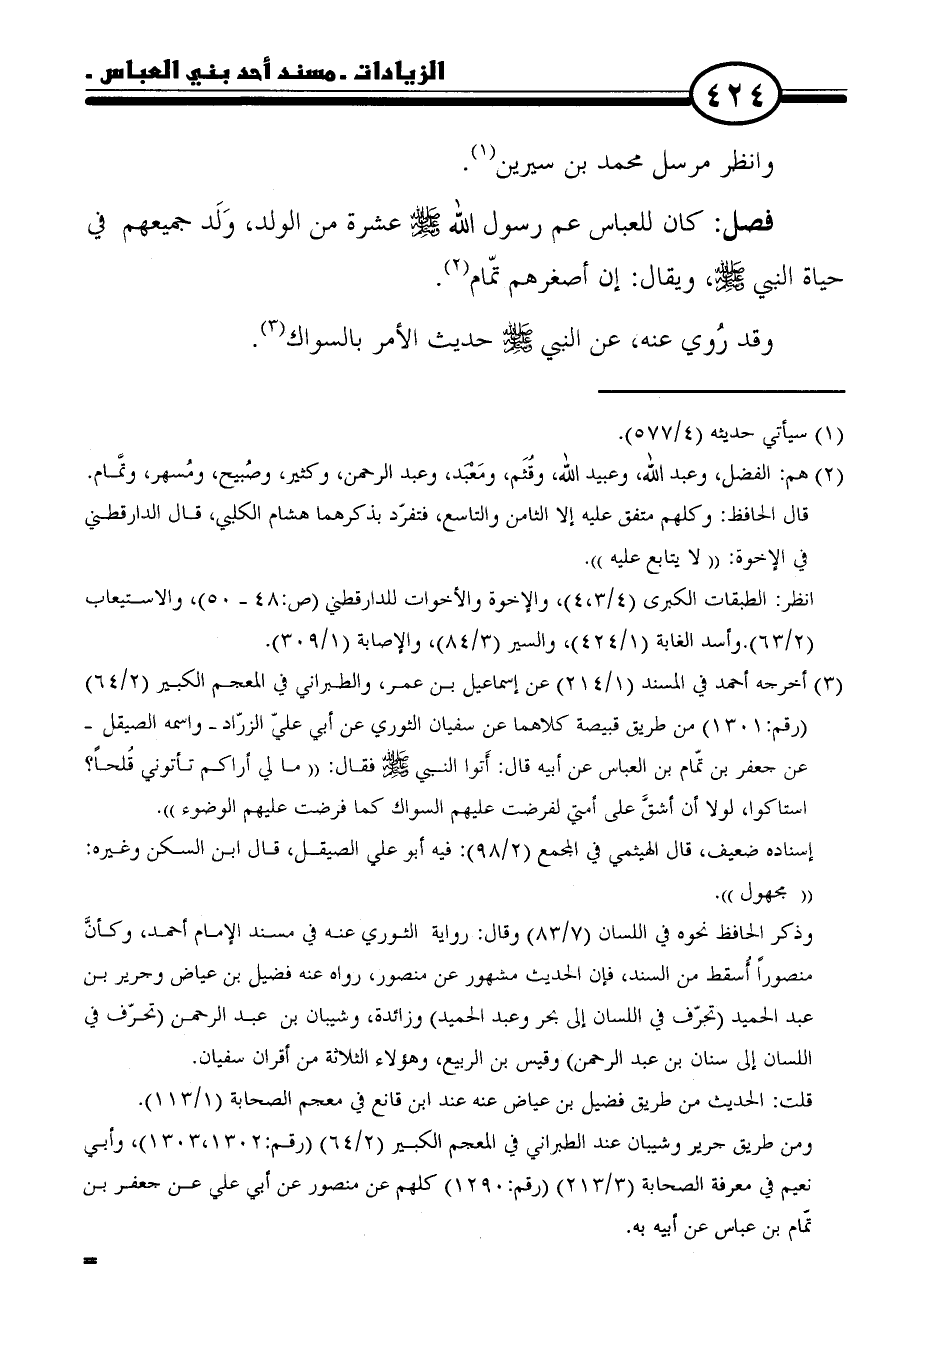 الزيادات ـ مسند أحد بني العباس ـ
٤٢٤
وانظر مرسل محمد بن سيرين(١).
فصل: كان للعباس عم رسول الله ﷺ عشرة من الولد، وَلَد جميعهم في
حياة النبي ﷺ، ويقال: إن أصغرهم تمّام(٢).
وقد رُوي عنه، عن النبي ﷺ حديث الأمر بالسواك(٣).
(١) سيأتي حديثه (٥٧٧/٤).
(٢) هم: الفضل، وعبد الله، وعبيد الله، وقُثَم، ومَعْبَد، وعبد الرحمن، وكثير، وصُبيح، ومُسهر، وتمَّام.
قال الحافظ: وكلهم متفق عليه إلا الثامن والتاسع، فتفرّد بذكرهما هشام الكلبي، قال الدارقطني
في الإخوة: (( لا يتابع عليه )).
انظر: الطبقات الكبرى (٤،٣/٤)، والإخوة والأخوات للدارقطني (ص:٤٨ ـ ٥٠)، والاستيعاب
(٦٣/٢).وأسد الغابة (٤٢٤/١)، والسير (٨٤/٣)، والإصابة (٣٠٩/١).
(٣) أخرجه أحمد في المسند (٢١٤/١) عن إسماعيل بن عمر، والطبراني في المعجم الكبير (٦٤/٢)
(رقم:١٣٠١) من طريق قبيصة كلاهما عن سفيان الثوري عن أبي عليّ الزرّاد ـ واسمه الصيقل ـ
عن جعفر بن تمّام بن العباس عن أبيه قال: أَتوا النبي ﷺ فقال: (( ما لي أراكم تأتوني قُلحاً؟
استاكوا، لولا أن أشقَّ على أمتي لفرضت عليهم السواك كما فرضت عليهم الوضوء )).
إسناده ضعيف، قال الهيثمي في المجمع (٩٨/٢): فيه أبو علي الصيقل، قال ابن السكن وغيره:
(( مجهول )).
وذكر الحافظ نحوه في اللسان (٨٣/٧) وقال: رواية الثوري عنه في مسند الإمام أحمد، وكأنَّ
منصوراً أُسقط من السند، فإن الحديث مشهور عن منصور، رواه عنه فضيل بن عياض وجرير بن
عبد الحميد (تحرّف في اللسان إلى بحر وعبد الحميد) وزائدة، وشيبان بن عبد الرحمن (تحرّف في
اللسان إلى سنان بن عبد الرحمن) وقيس بن الربيع، وهؤلاء الثلاثة من أقران سفيان.
قلت: الحديث من طريق فضيل بن عياض عنه عند ابن قانع في معجم الصحابة (١١٣/١).
ومن طريق جرير وشيبان عند الطبراني في المعجم الكبير (٦٤/٢) (رقم:١٣٠٣،١٣٠٢)، وأبي
نعيم في معرفة الصحابة (٢١٣/٣) (رقم:١٢٩٠) كلهم عن منصور عن أبي علي عن جعفر بن
تمّام بن عباس عن أبيه به.
=